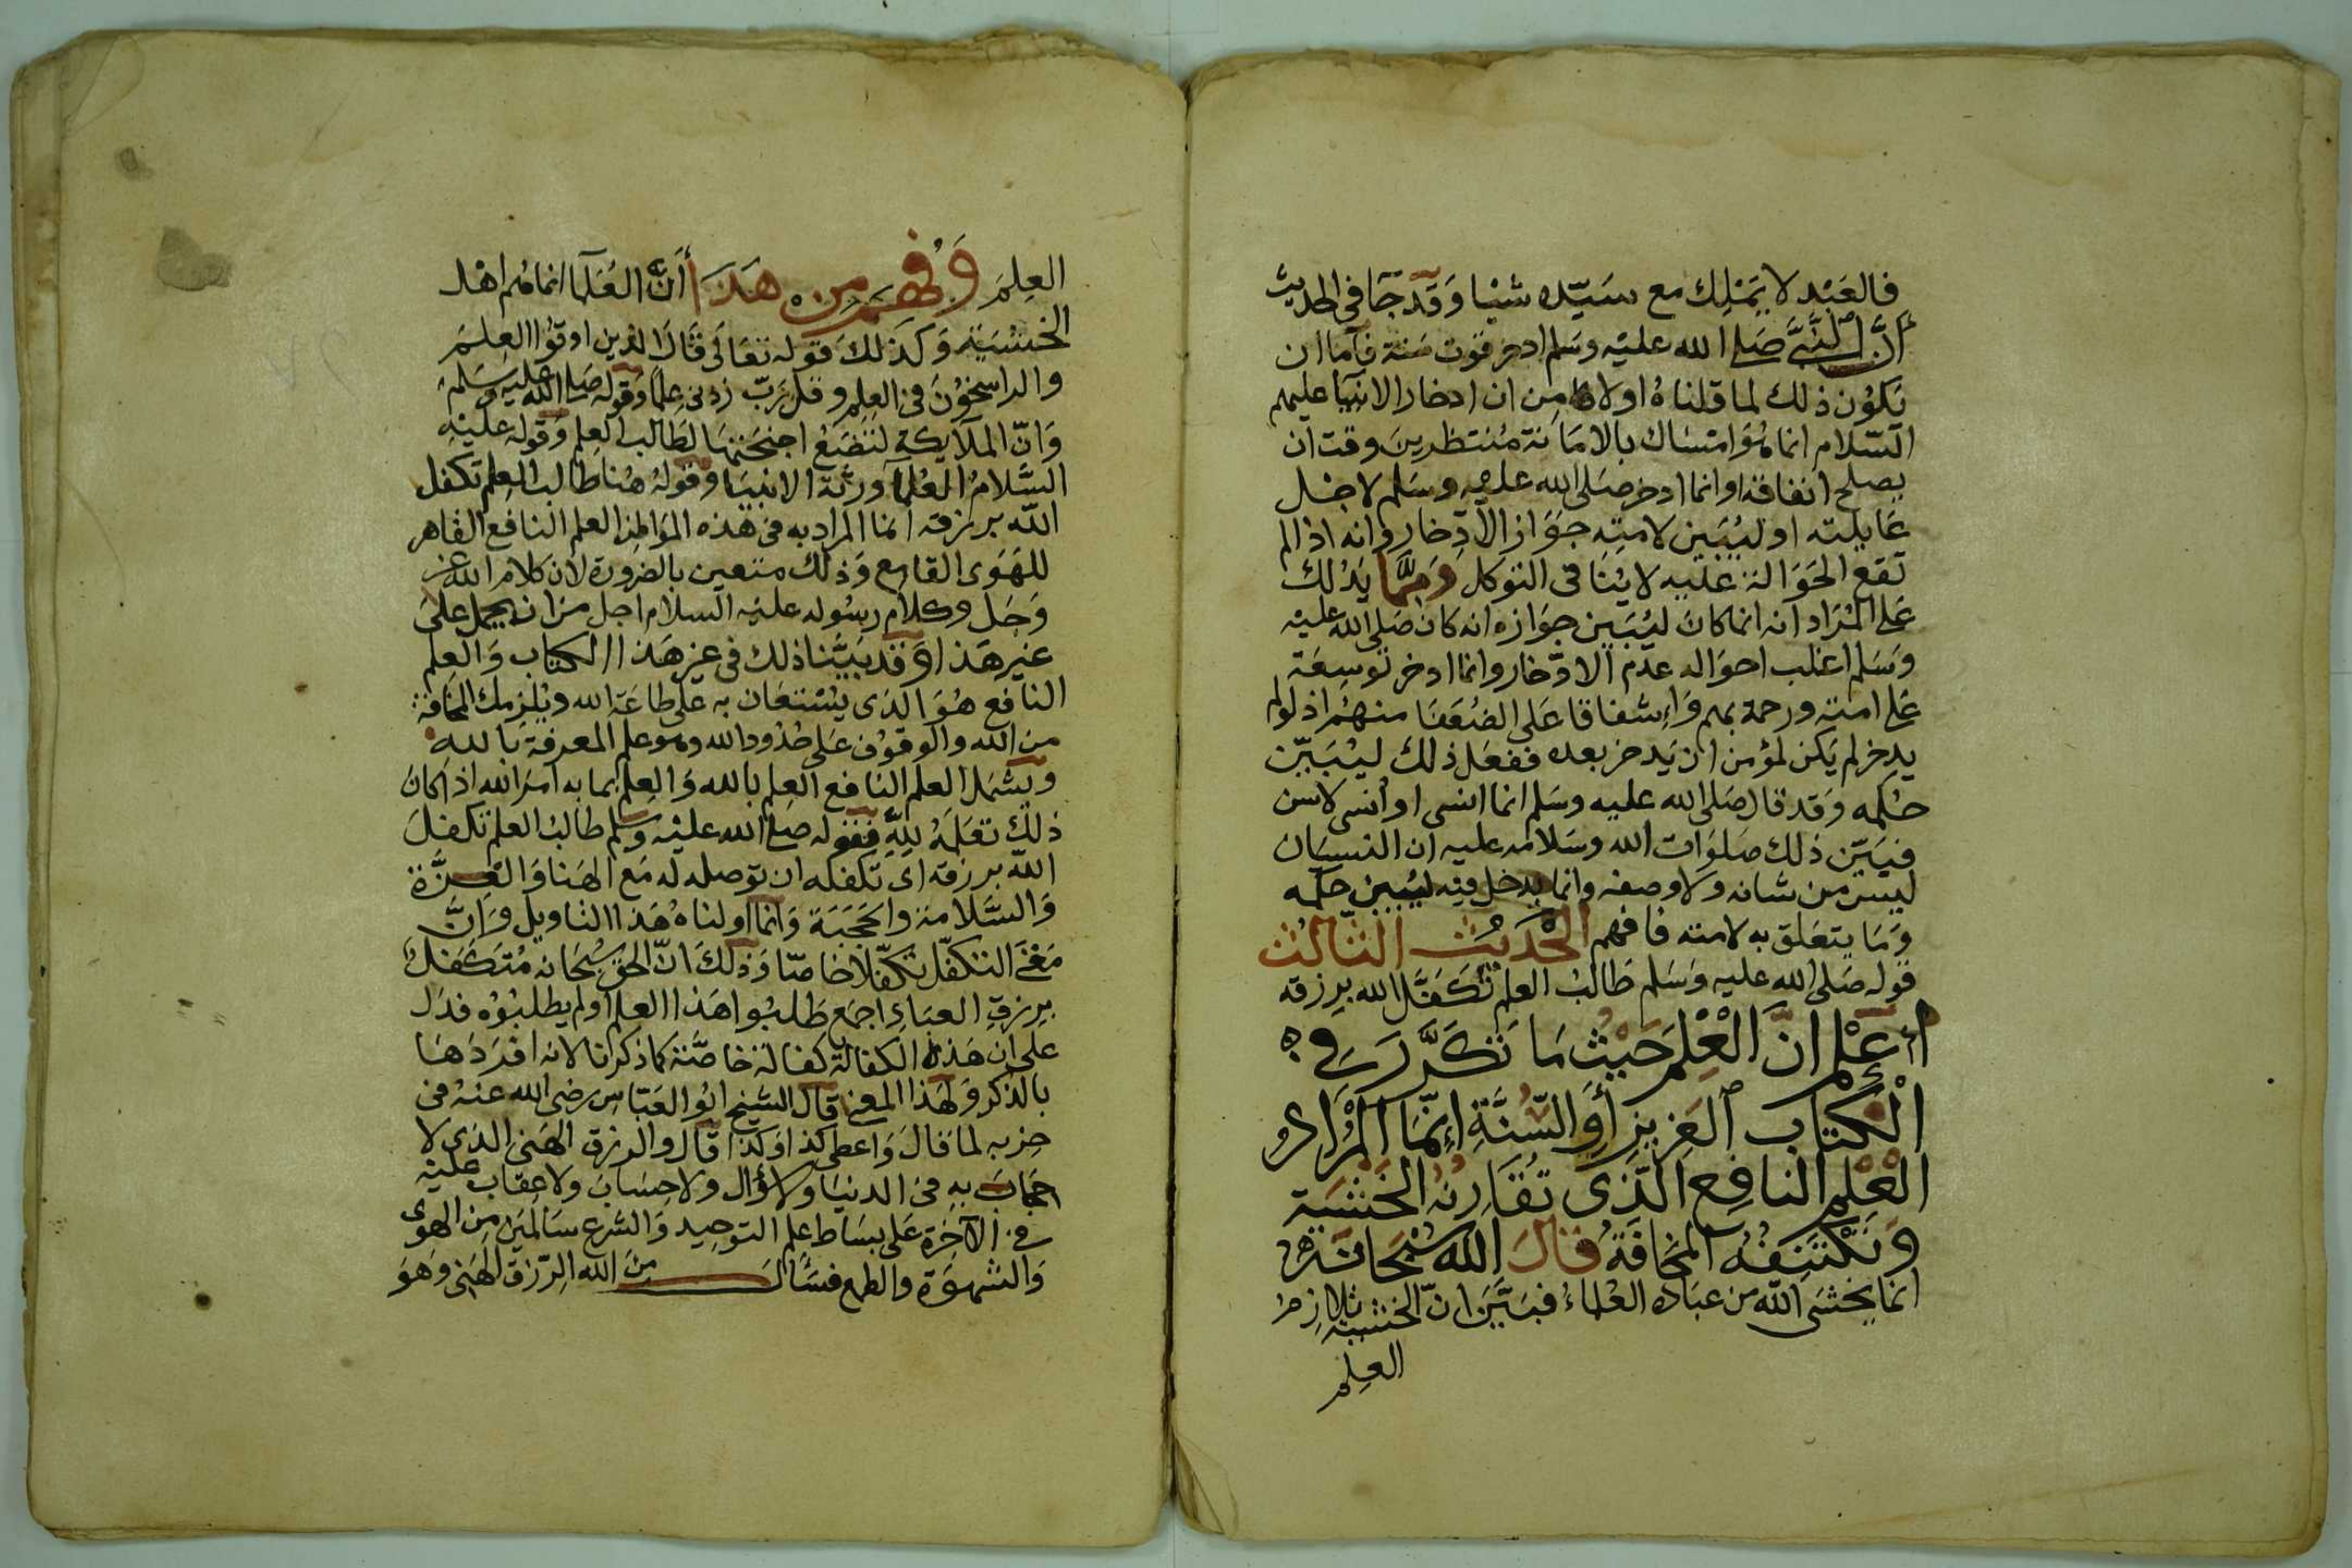 فالعَبْد لا يَمْلِك مع سَيّده شيْا وَقَد جَآ فى الحديث
أنَّ النَّبىَّ صَلى الله عليْه وسَلم ادخر قوت سَنة فآما ان
تَكوُن ذلك لما قلناهُ اولا من ان ادخار الانبيَا عليهم
السّلام انما هُوَ امتسَاك بالامَانة مُنتظرينَ وقت ان
يصلح انفاقه او انما ادخر صَلى الله عليه وسَلم لاجْل
عَايلته او ليُبَيِن لامته جَوَاز الادِخار وانه اذا لم
تقع الحَوَالة عَليه لا يُنافى التوكل وَمِمَّا يَدُلك
عَلى المُرَاد انه انما كان ليُبَين جوَازه انه كان صَلى الله عليْه
وَسَلم اغلب احوَاله عدَم الادّخار وانما ادخر توسعَة
عَلى امته ورحمة بهم وَإشفاقا عَلى الضُعَفَا منهُم اذ لو لم
يدخر لم يَكن لمؤمن ان يَدخر بعده ففعَل ذلك ليُبَيّن
حُكمه وَقد قال صَلى الله عليه وسَلم انما انسى او أُنسى لاسن
فبَيّن ذلك صَلوَات الله وسَلامه عليه ان النسيَان
ليسَ من شانه ولا وصفه وانما يدخل فيه ليُبين حكمه
وَمَا يتعَلق به لامته فافهم الحَديْث الثالث
قوله صَلى الله عليه وَسَلم طَالبُ العلم تَكَفَّل الله برزقه
إعْلم انَّ الْعِلمَ حَيْث مَا تَكَرَّرَ فى
الْكتاب العَزيزِ أَوِ السُّنَّةِ إنّمَا المُرَادُ
الْعِلْم النافِع الَّذى تُقَارِنُه الخَشْيَة
وَتَكْتَنِفُه المخَافَةُ قَالَ الله سُبْحَانَهُ
انما يَخشى اللهَ من عبَاده العُلماءُ فبَيَّنَ انّ الخشية تلازم
العِلم
العِلمَ وَفُهِمَ مِن هَذَا أَنَّ العُلَمَا انما هُم اهْل
الخشيَة وَكذَلك قوله تعَالى قَالَ الذين اوتُوا العِلمَ
والراسخُوْنَ فى العِلم وقل رّبّ زدنى عِلمًا وَقوله صَلى الله عليه وَسَلم
وَانّ الملآيكة لتضَعُ اجنحَتهَا لطَالب العِلم وَقوله عليْه
السَّلامُ العُلمآ ورثة الانبيَا وقولهُ هُنا طالب العِلم تكفل
الله برزقه انما المراد به فى هذه الموَاطن العلم النافع القاهر
للهَوَى القامع وَذلك متعين بالضرورة لان كلام الله عز
وَجَل وكلام رسُوله عليْه السلام اجل من ان يحمل على
غير هَذا وَقد بَيّنا ذلك فى غير هَذا الكتاب وَالعِلم
النافع هُوَ الذى يُسْتعَان به على طاعَة الله ويُلزمك المخافة
من الله والوقوْف عَلى حُدُود الله وهو علم المعرفة بالله
ويَشمل العلم النافع العِلم بالله وَالعِلم بما به امَرَ الله اذا كان
ذلك تعَلمهُ للهِ فقوله صلى الله عليْه وَسلم طالبُ العلم تكفلَ
الله برزقه اى تكفل له ان توصله له مَع الهَنا وَالعِزَّة
وَالسَّلامة والحَجَبَة وَانما اولناهُ هَذا التاويل وَانَّ
مَعْنى التكفّل تكفّلا خاصّا وَذلكَ انّ الحق سُبحَانه مُتَكَفل
برزق العبَادِ اجمع طَلبُوا هَذا العلم او لم يطلبُوْه فدَل
على ان هَذه الكفالة كفالة خاصَّة كما ذكرنا لانه افرَدَهَا
بالذكر وَلهَذا المعنى قال الشيخ ابُو العَبّاس رضى الله عنهُ فى
حزبه لما قالَ وَاعطى كذا وَكذا قال والرزق الهَنى الذى لا
حجَابَ به فى الدنيَا ولا سُؤال ولا حِسَابَ ولا عِقابَ عليْه
فى الآخرَة عَلى بسَاط علم التوحِيد وَالشرع سَالمينَ من الهوَى
وَالشهوَة والطمع فسَألَ منَ الله الرّزق الهَنى وَهوَ